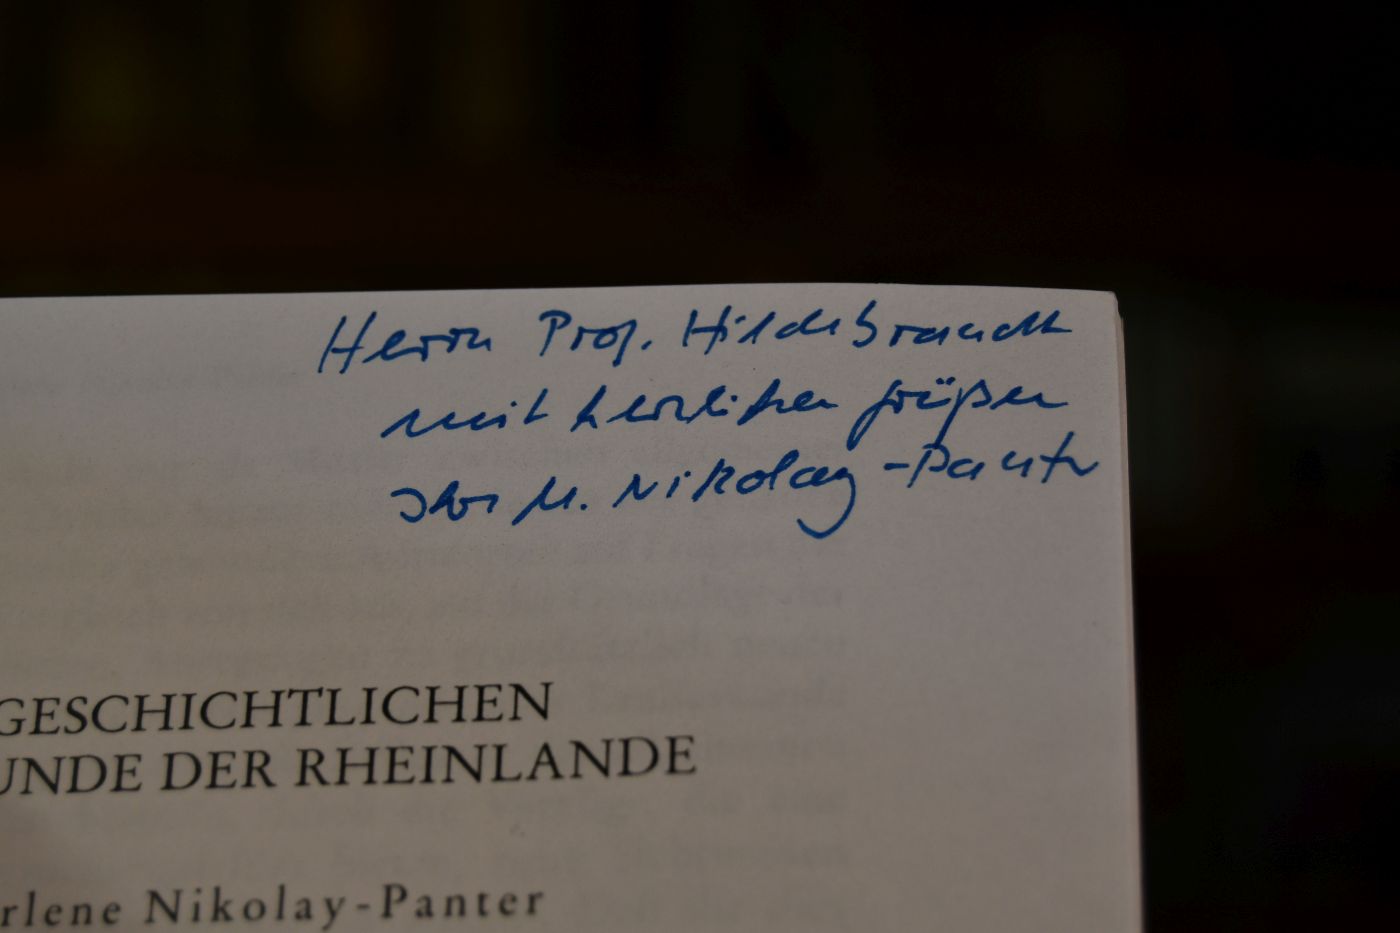 Herrn Prof. Hildebrandt
mit herzlichen Grüßen
Ihre M. Nikolay-Panter
GESCHICHTLICHEN
UNDE DER RHEINLANDE
rlene Nikolay-Panter